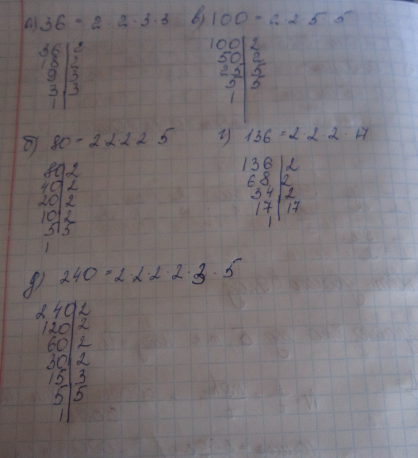 а) 36 = 2 · 2 · 3 · 3 в) 100 = 2 2 5 5
36|2 100|2
18|2 50|2
9|3 25|5
3|3 5|5
1| 1|
б) 80 = 2 2 2 2 5 г) 136 = 2 2 2 17
80|2 136|2
40|2 68|2
20|2 34|2
10|2 17|17
5|5 1|
1
д) 240 = 2 2 2 · 2 · 3 · 5
240|2
120|2
60|2
30|2
15|3
5|5
1|